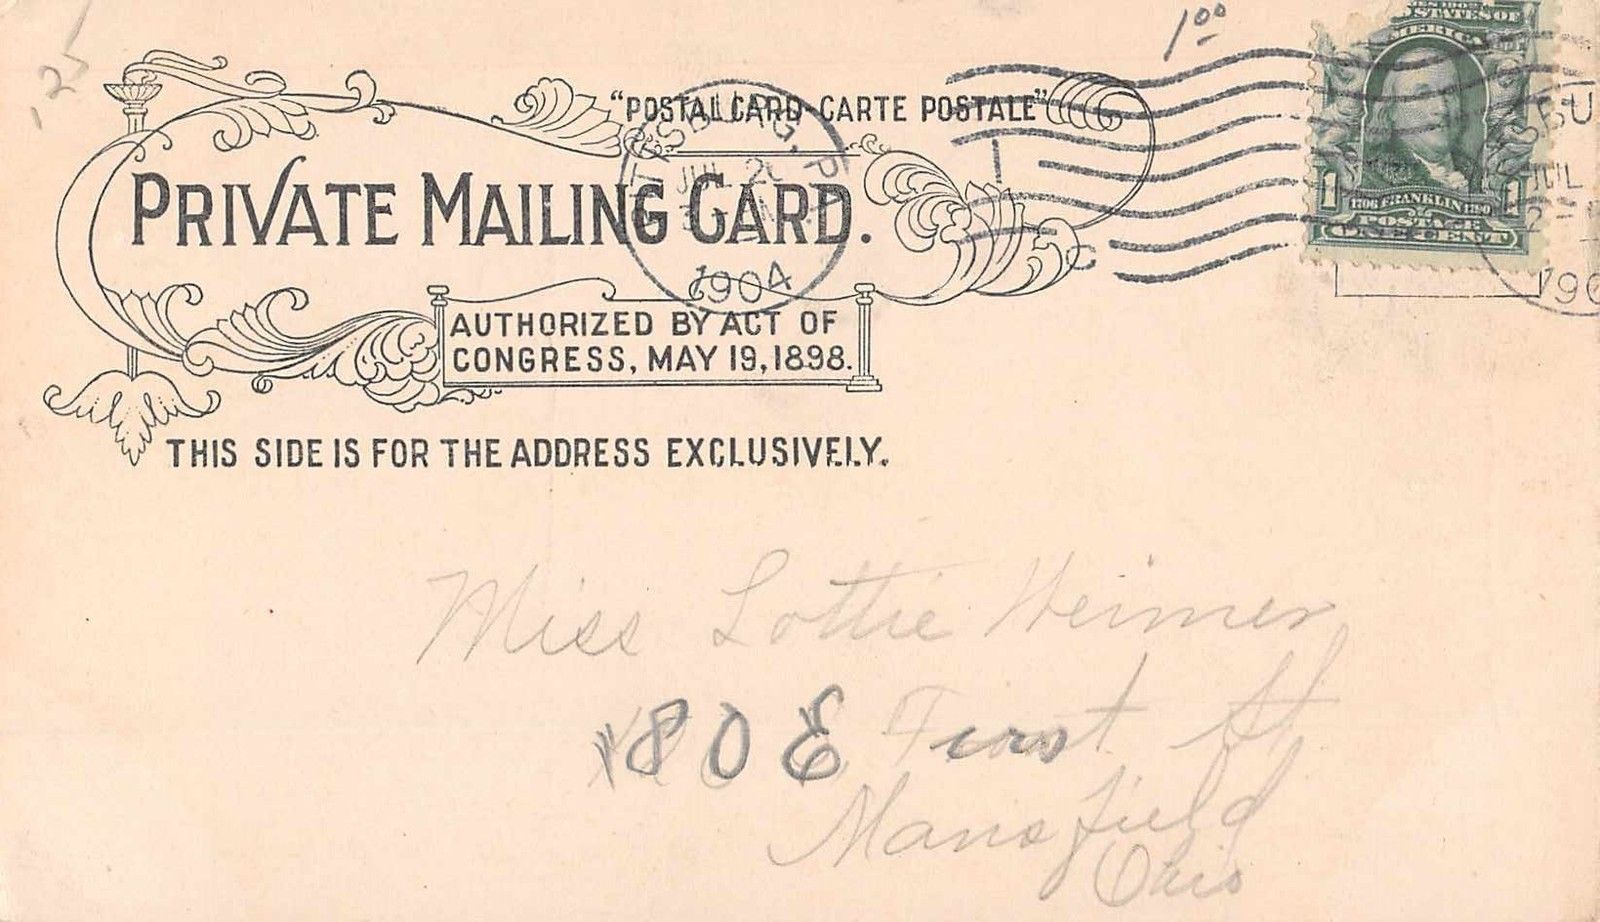 .25
1.00
"POSTAL CARD-CARTE POSTALE"
PRIVATE MAILING CARD.
AUTHORIZED BY ACT OF
CONGRESS, MAY 19, 1898.
THIS SIDE IS FOR THE ADDRESS EXCLUSIVELY.
TTSBURG, PA
JUL
1904
STATES OF
AMERICA
1706 FRANKLIN 1790
1 1
POSTAGE
ONE CENT
SBU
JUL
190
Miss Lottie Heimer
80 E First St
Mansfield
Ohio